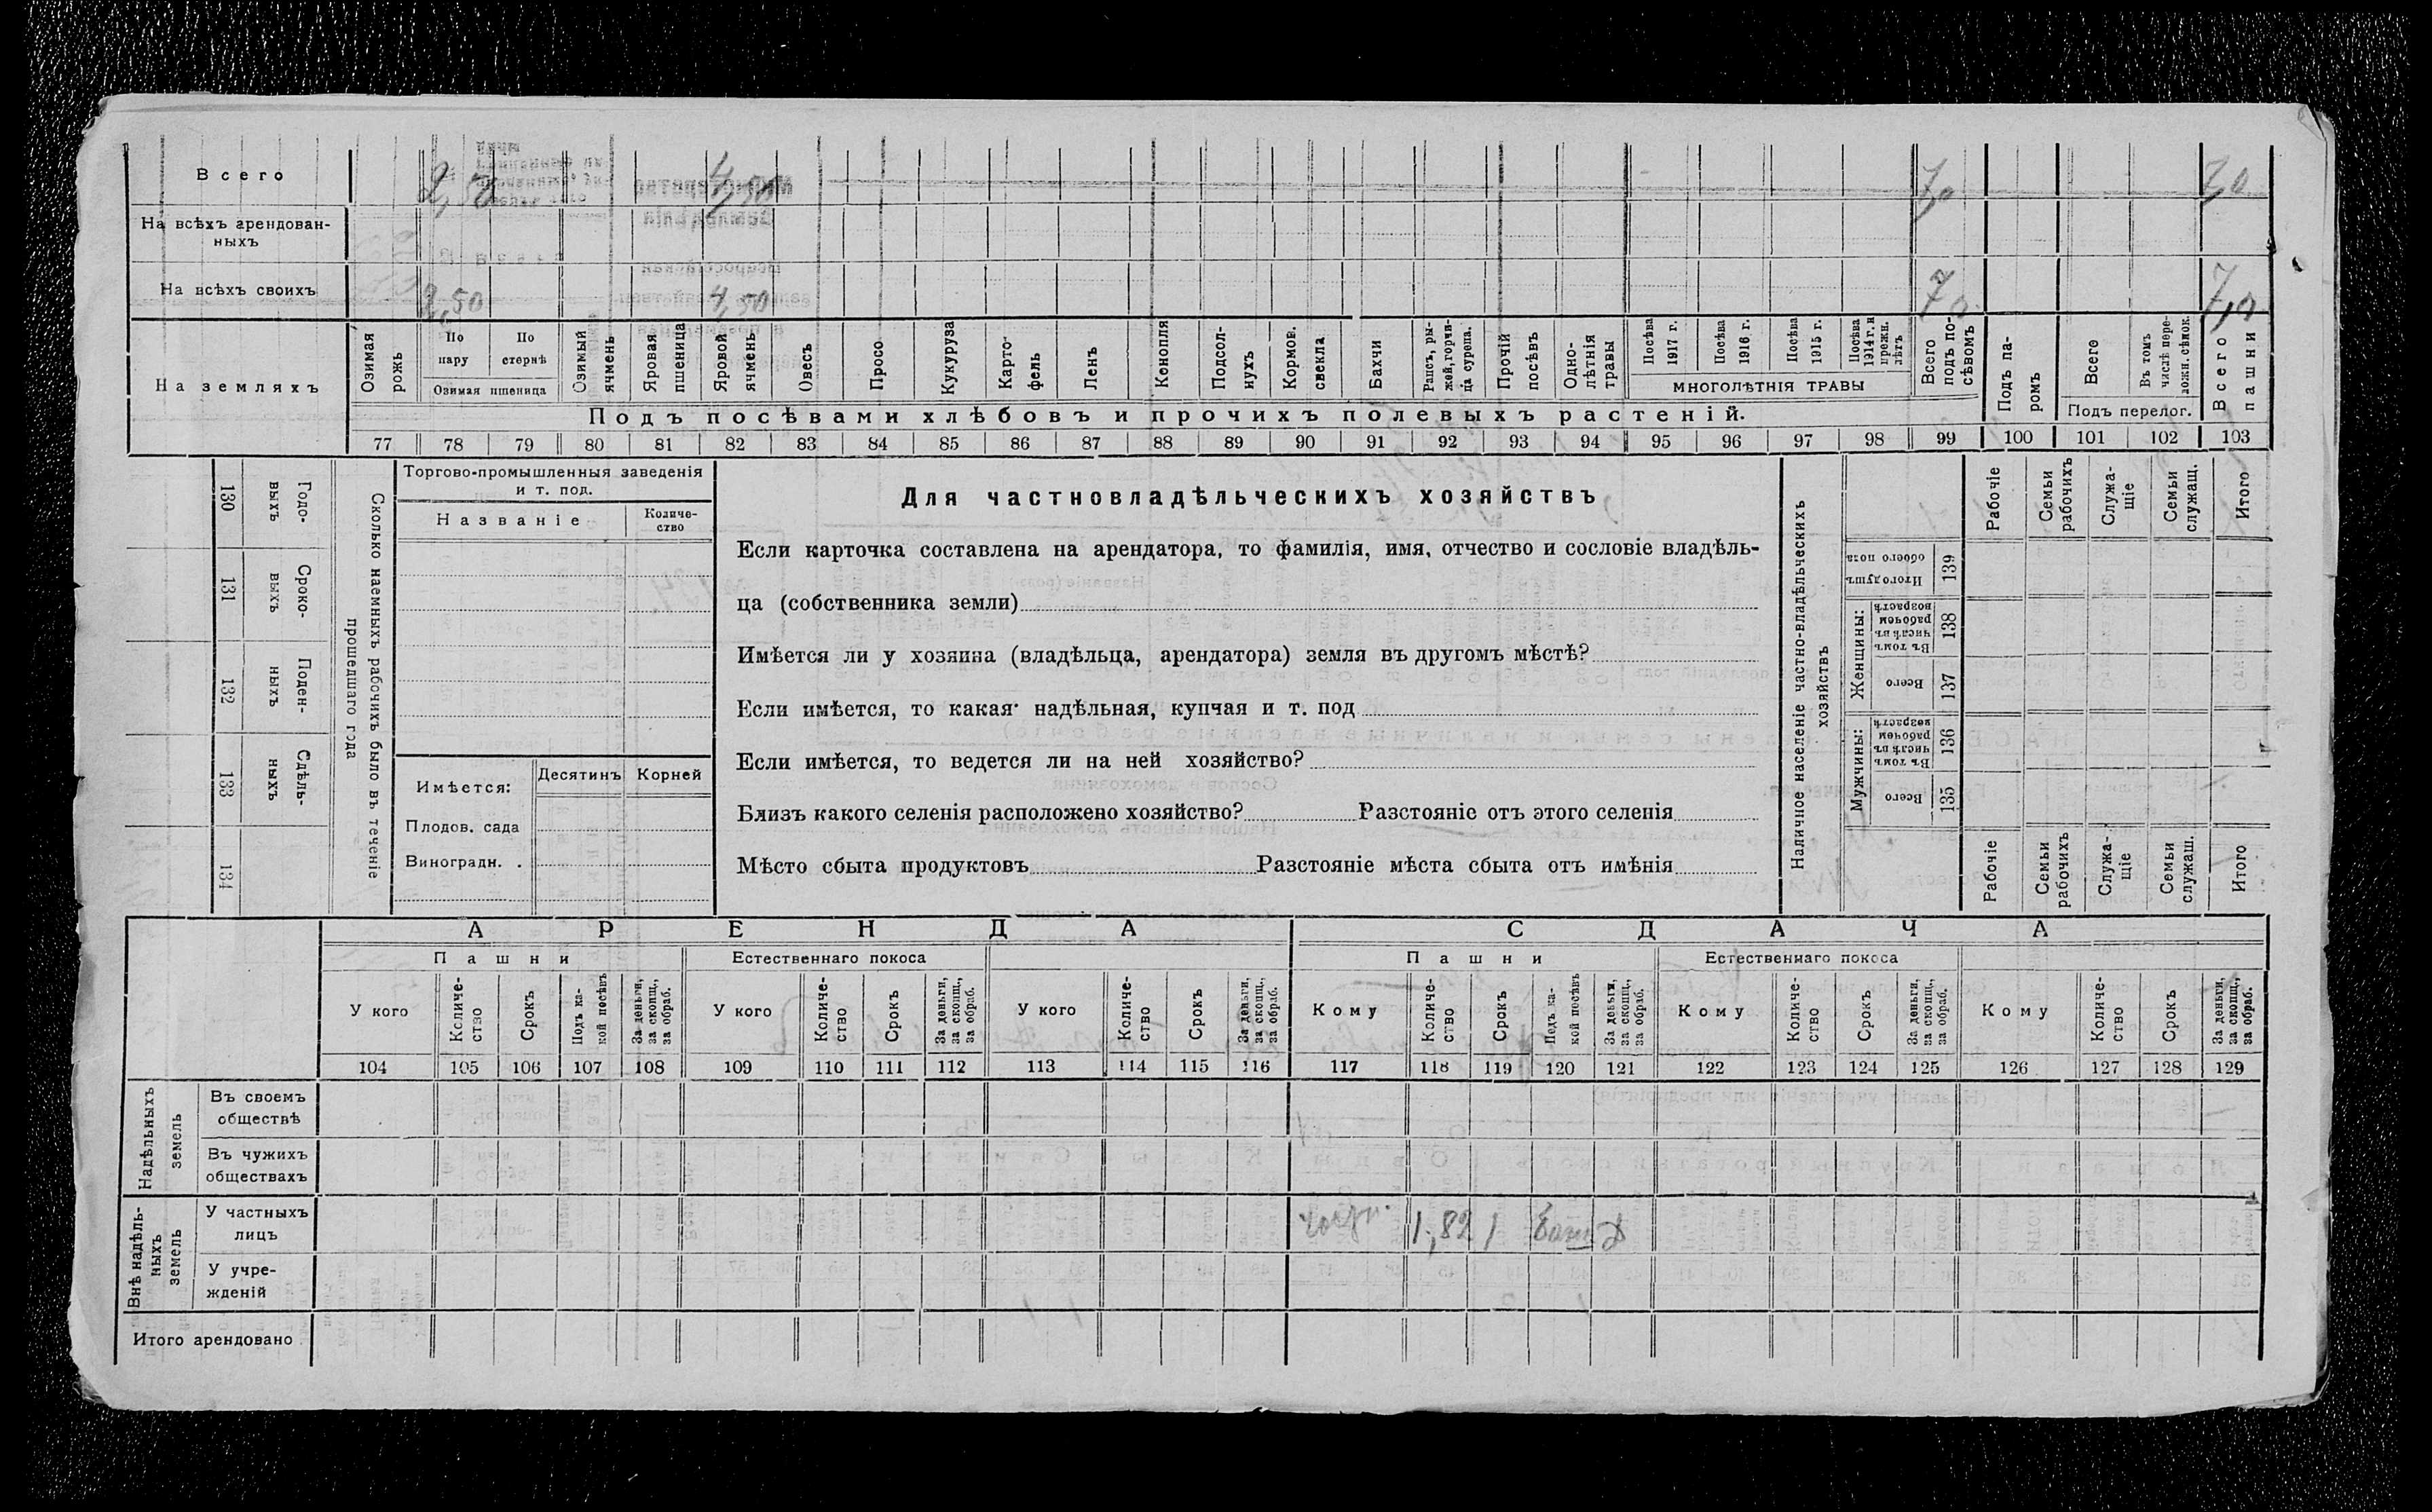 Всего 2,50 4,50 7,0 7,0
На всѣхъ арендован-
ныхъ
На всѣхъ своихъ 2,50 4,50 7,0 7,0
На земляхъ
Озимая рожь
По пару
По стернѣ
Озимая пшеница
Озимый ячмень
Яровая пшеница
Яровой ячмень
Овесъ
Просо
Кукуруза
Карто-
фель
Ленъ
Конопля
Подсол-
нухъ
Кормов. свекла
Бахчи
Рапсъ, ры-
жей, горчи-
ца сурепа.
Прочій посѣвъ
Одно-
лѣтнія травы
Посѣва 1917 г.
Посѣва 1916 г.
Посѣва 1915 г.
Посѣва 1914 г. и прежн. лѣтъ
МНОГОЛѢТНІЯ ТРАВЫ
Всего подъ по-
сѣвомъ
Подъ па-
ромъ
Всего
Въ томъ числѣ пере-
ложн. сѣнок.
Подъ перелог.
Всего пашни
Подъ посѣвами хлѣбовъ и прочихъ полевыхъ растеній.
77 78 79 80 81 82 83 84 85 86 87 88 89 90 91 92 93 94 95 96 97 98 99 100 101 102 103
130 Годо-
выхъ
131 Сроко-
выхъ
132 Поден-
ныхъ
133 Сдѣль-
ныхъ
134
Сколько наемныхъ рабочихъ было въ теченіе
прошедшаго года
Торгово-промышленныя заведенія
и т. под.
Названіе
Количе-
ство
Имѣется:
Десятинъ
Корней
Плодов. сада
Виноградн. .
Для частновладѣльческихъ хозяйствъ
Если карточка составлена на арендатора, то фамилія, имя, отчество и сословіе владѣль-
ца (собственника земли)
Имѣется ли у хозяина (владѣльца, арендатора) земля въ другомъ мѣстѣ?
Если имѣется, то какая: надѣльная, купчая и т. под
Если имѣется, то ведется ли на ней хозяйство?
Близъ какого селенія расположено хозяйство? Разстояніе отъ этого селенія
Мѣсто сбыта продуктовъ Разстояніе мѣста сбыта отъ имѣнія
Наличное населеніе частно-владѣльческихъ
хозяйствъ
Рабочіе
Семьи рабочихъ
Служа-
щіе
Семьи служащ.
Итого
Итого душъ обоего пола 139
Женщины:
Въ томъ числѣ въ рабочем возрастѣ 138
Всего 137
Мужчины:
Въ томъ числѣ въ рабочем возрастѣ 136
Всего 135
Рабочіе
Семьи рабочихъ
Служа-
щіе
Семьи служащ.
Итого
АРЕНДА
СДАЧА
Пашни
Естественнаго покоса
Пашни
Естественнаго покоса
У кого
Количе-
ство
Срокъ
Подъ ка-
кой посѣвъ
За деньги, за скопщ., за обраб.
У кого
Количе-
ство
Срокъ
За деньги, за скопщ., за обраб.
У кого
Количе-
ство
Срокъ
За деньги, за скопщ., за обраб.
Кому
Количе-
ство
Срокъ
Подъ ка-
кой посѣвъ
За деньги, за скопщ., за обраб.
Кому
Количе-
ство
Срокъ
За деньги, за скопщ., за обраб.
Кому
Количе-
ство
Срокъ
За деньги, за скопщ., за обраб.
104 105 106 107 108 109 110 111 112 113 114 115 116 117 118 119 120 121 122 123 124 125 126 127 128 129
Надѣльныхъ земель
Въ своемъ
обществѣ
Въ чужихъ
обществахъ
Внѣ надѣль-
ныхъ земель
У частныхъ
лицъ
1,82 1
У учре-
жденій
Итого арендовано